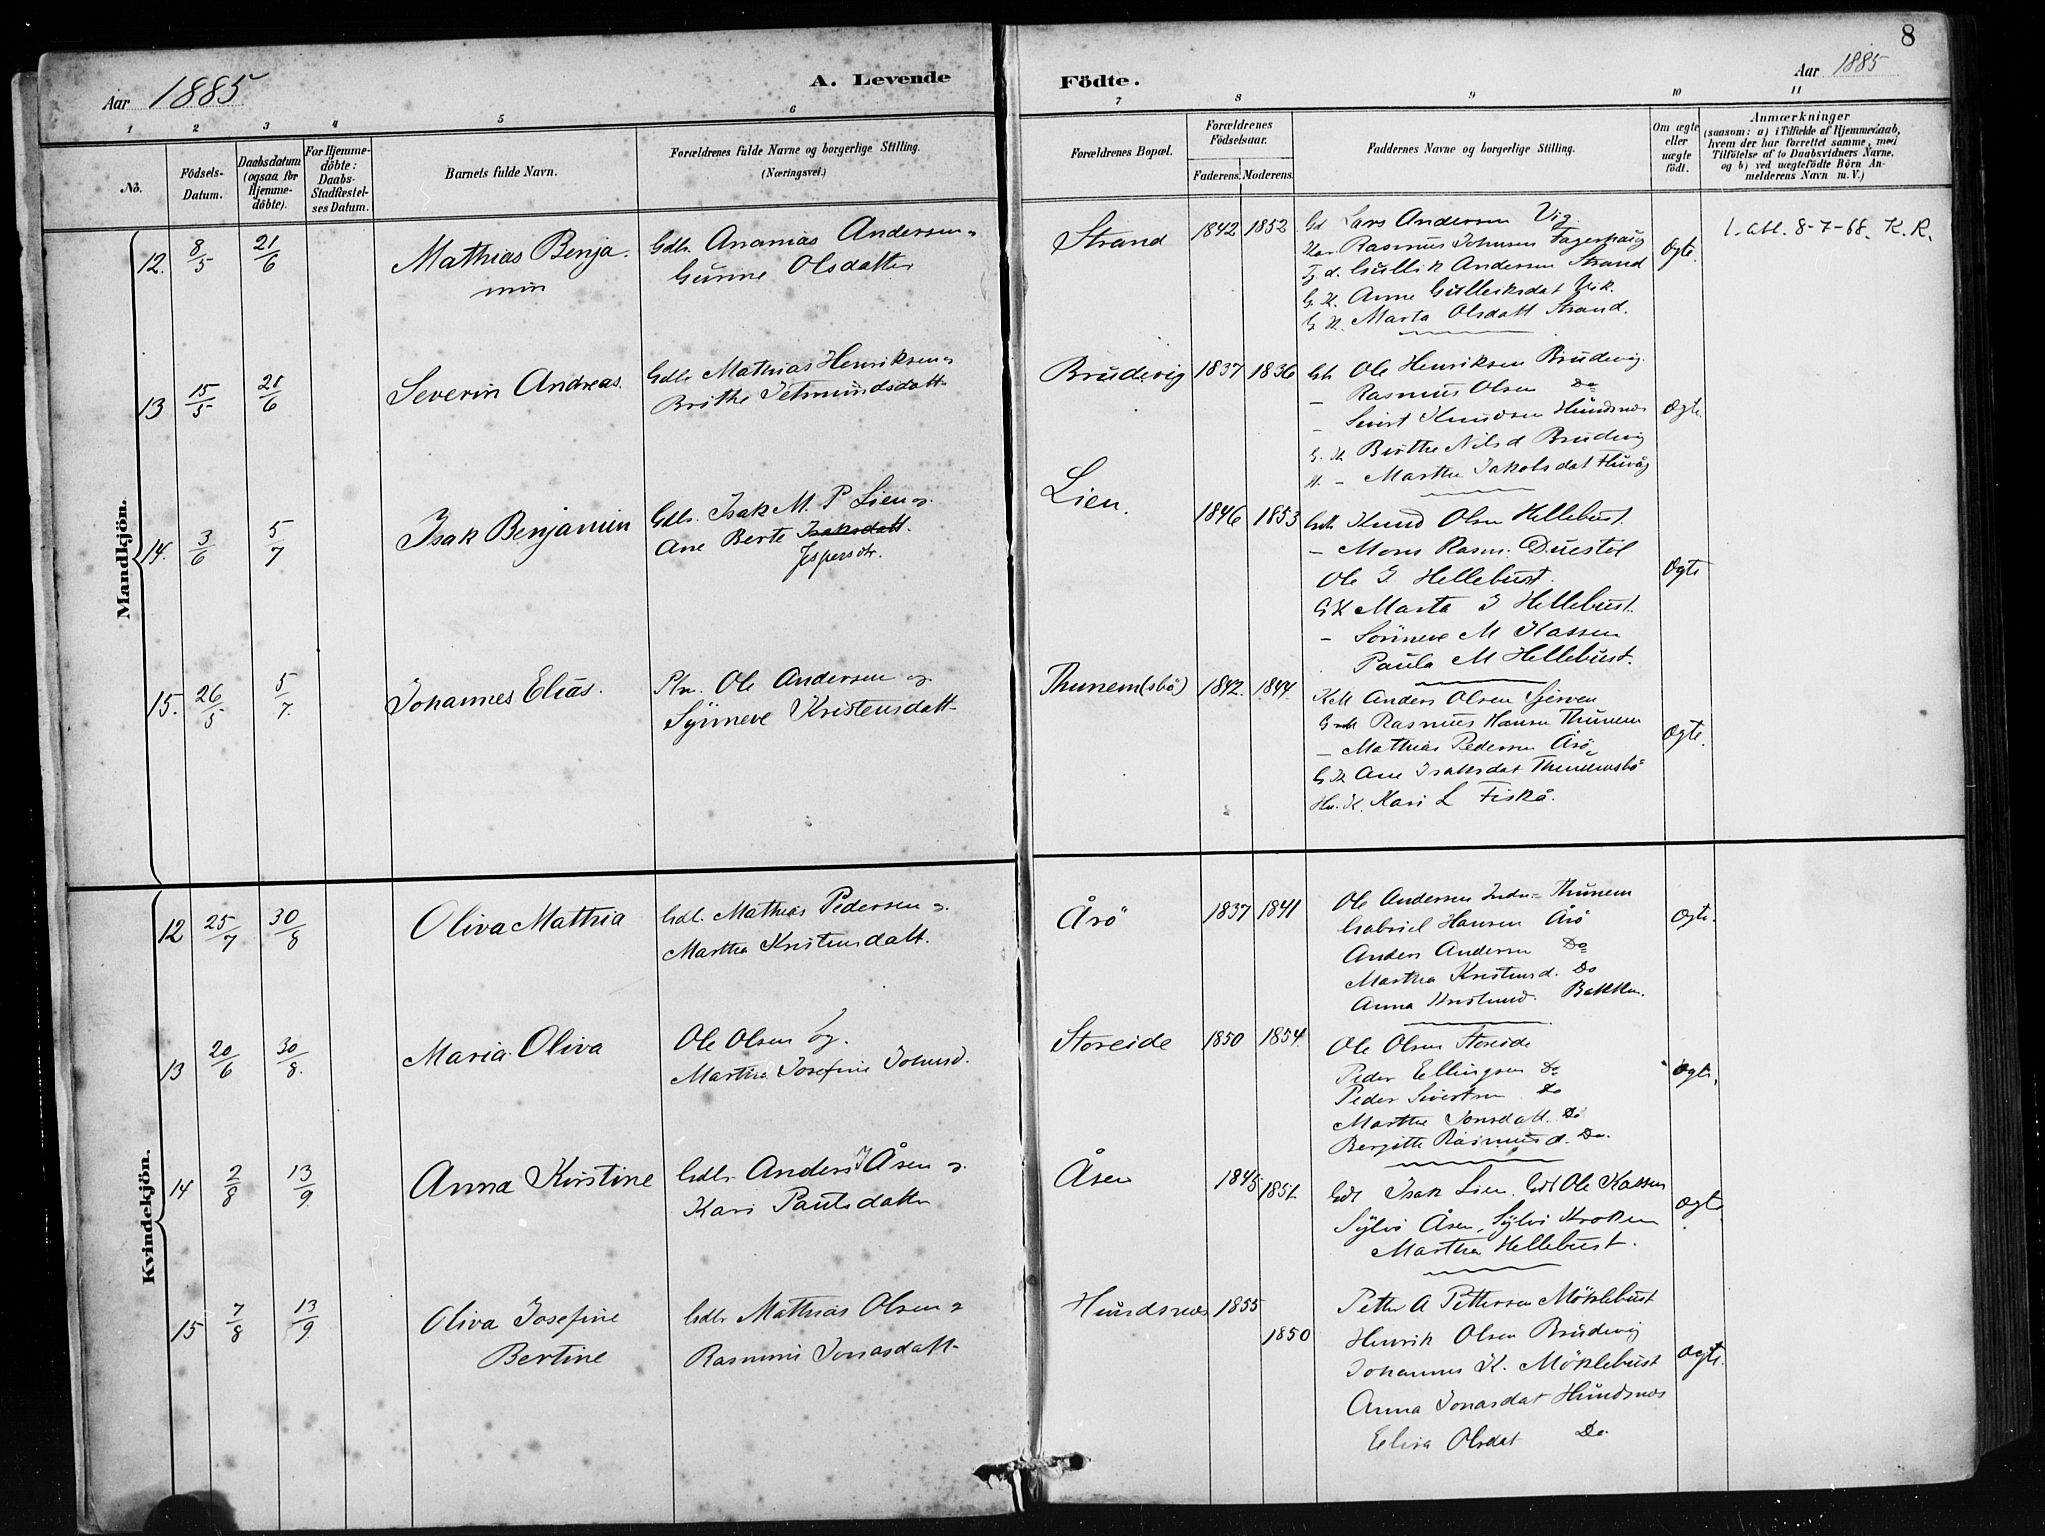 8
Aar 1885
A. Levende
Födte.
Aar 1885
1 2 3 4 5 6 7 8 9 10 11
No.
Födsels-
Datum.
Daabsdatum
(ogsaa for
Hjemme-
döbte).
For Hjemme-
döbte:
Daabs-
Stadfæstel-
ses Datum.
Barnets fulde Navn.
Forældrenes fulde Navne og borgerlige Stilling.
(Næringsvei.)
Forældrenes Bopæl.
Forældrenes
Födselsaar.
Faderens. Moderens.
Faddernes Navne og borgerlige Stilling.
Om ægte
eller
uægte
født.
Anmærkninger
(saasom: a) i Tilfælde af Hjemmedaab,
hvem der har forrettet samme, med
Tilföielse af to Daabsvidners Navne,
og b) ved uægtefödte Börn An-
melderens Navn m. V.)
Mandkjön.
12. 8/5 21/6
Mathias Benja-
min
Gdbr Ananias Andersen o
Gurine Olsdatter
Strand
1842 1852
Gd Lars Andersen Vig
Rasmus Johnsen Fagerhaug
Gullik Andersen Strand
G. K. Anne Gulleiksdat Vik.
G. K. Marta Olsdatt Strand.
Ægte.
1. att. 8-7-68. K. R.
13 15/5 21/6
Severin Andreas.
Gdbr Mathias Henriksen o
Brithe Tetmundsdatt
Brudevig
1837 1836
Gb. Ole Henriksen Brudevig.
— Rasmus Olsen Do
— Sivert Knudsen Hundsnes
G. K Birthe Nils d Brudevig
K. — Marthe Jakobsdat
Ægte.
14. 3/6 5/7
Isak Benjamin
Gdbr. Isak M. P Lien o.
Ane Berte Isaksdatt.
Jespersdtr.
Lien.
1846 1853
Knud Olsen Hellebust.
— Mons Rasm. Duestøl
Ole I Hellebust.
G K Marta I Hellebust.
— Sönneve M Kassen
Paula M Hellebust.
Ægte
15. 26/5 5/7
Johannes Elias.
Ole Andersen og
Synneve Kristensdatt
Thunem(sbö)
1842. 1844.
Anders Olsen Gjerven
Rasmus Hansen Thunem
— Mathias Pedersen Årö
G K Ane Isaksdat Thunemsbö
K. Kari L Fiskå.
Ægte.
Kvindekjön.
12 25/7 30/8
Oliva Mathia
Gdb. Mathias Pedersen o.
Martha Kristensdatt.
Årö
1837 1841
Ole Andersen Thunem
Gabriel Hansen Årö
Anders Andersen Do
Martha Kristensd. Do
Anna Kristensd. Bakken.
Ægte.
13 20/6 30/8.
Maria Oliva
Ole Olsen og.
Martha Josefine Johnsd.
Storeide
1850 1854.
Ole Olsen Storeide
Peder Ellingsen Do
Peder Sivertsen Do
Marthe Jonsdatt Do
Bergitte Rasmusd. Do.
Ægte.
14 2/8 13/9
Anna Kirstine
Gdbr. Anders I Åsen o.
Kari Paulsdatter
Åsen
1845 1851.
Gdb Isak Lien. Gdb Ole Kassen
Sylvi Åsen, Sylvi Kroken
Martha Hellebust.
Ægte.
15 7/8 13/9
Oliva Josefine
Bertine
Gdbr Mathias Olsen o
Rasmine Jonasdatt
Hundsnes
1855
1850
Petter A Pettersen Möklebust
Henrik Olsen Brudevig
Johannes K. Möklebust
Anna Jonasdat Hundsnes
Elisa Olsdat Do.
Ægte.